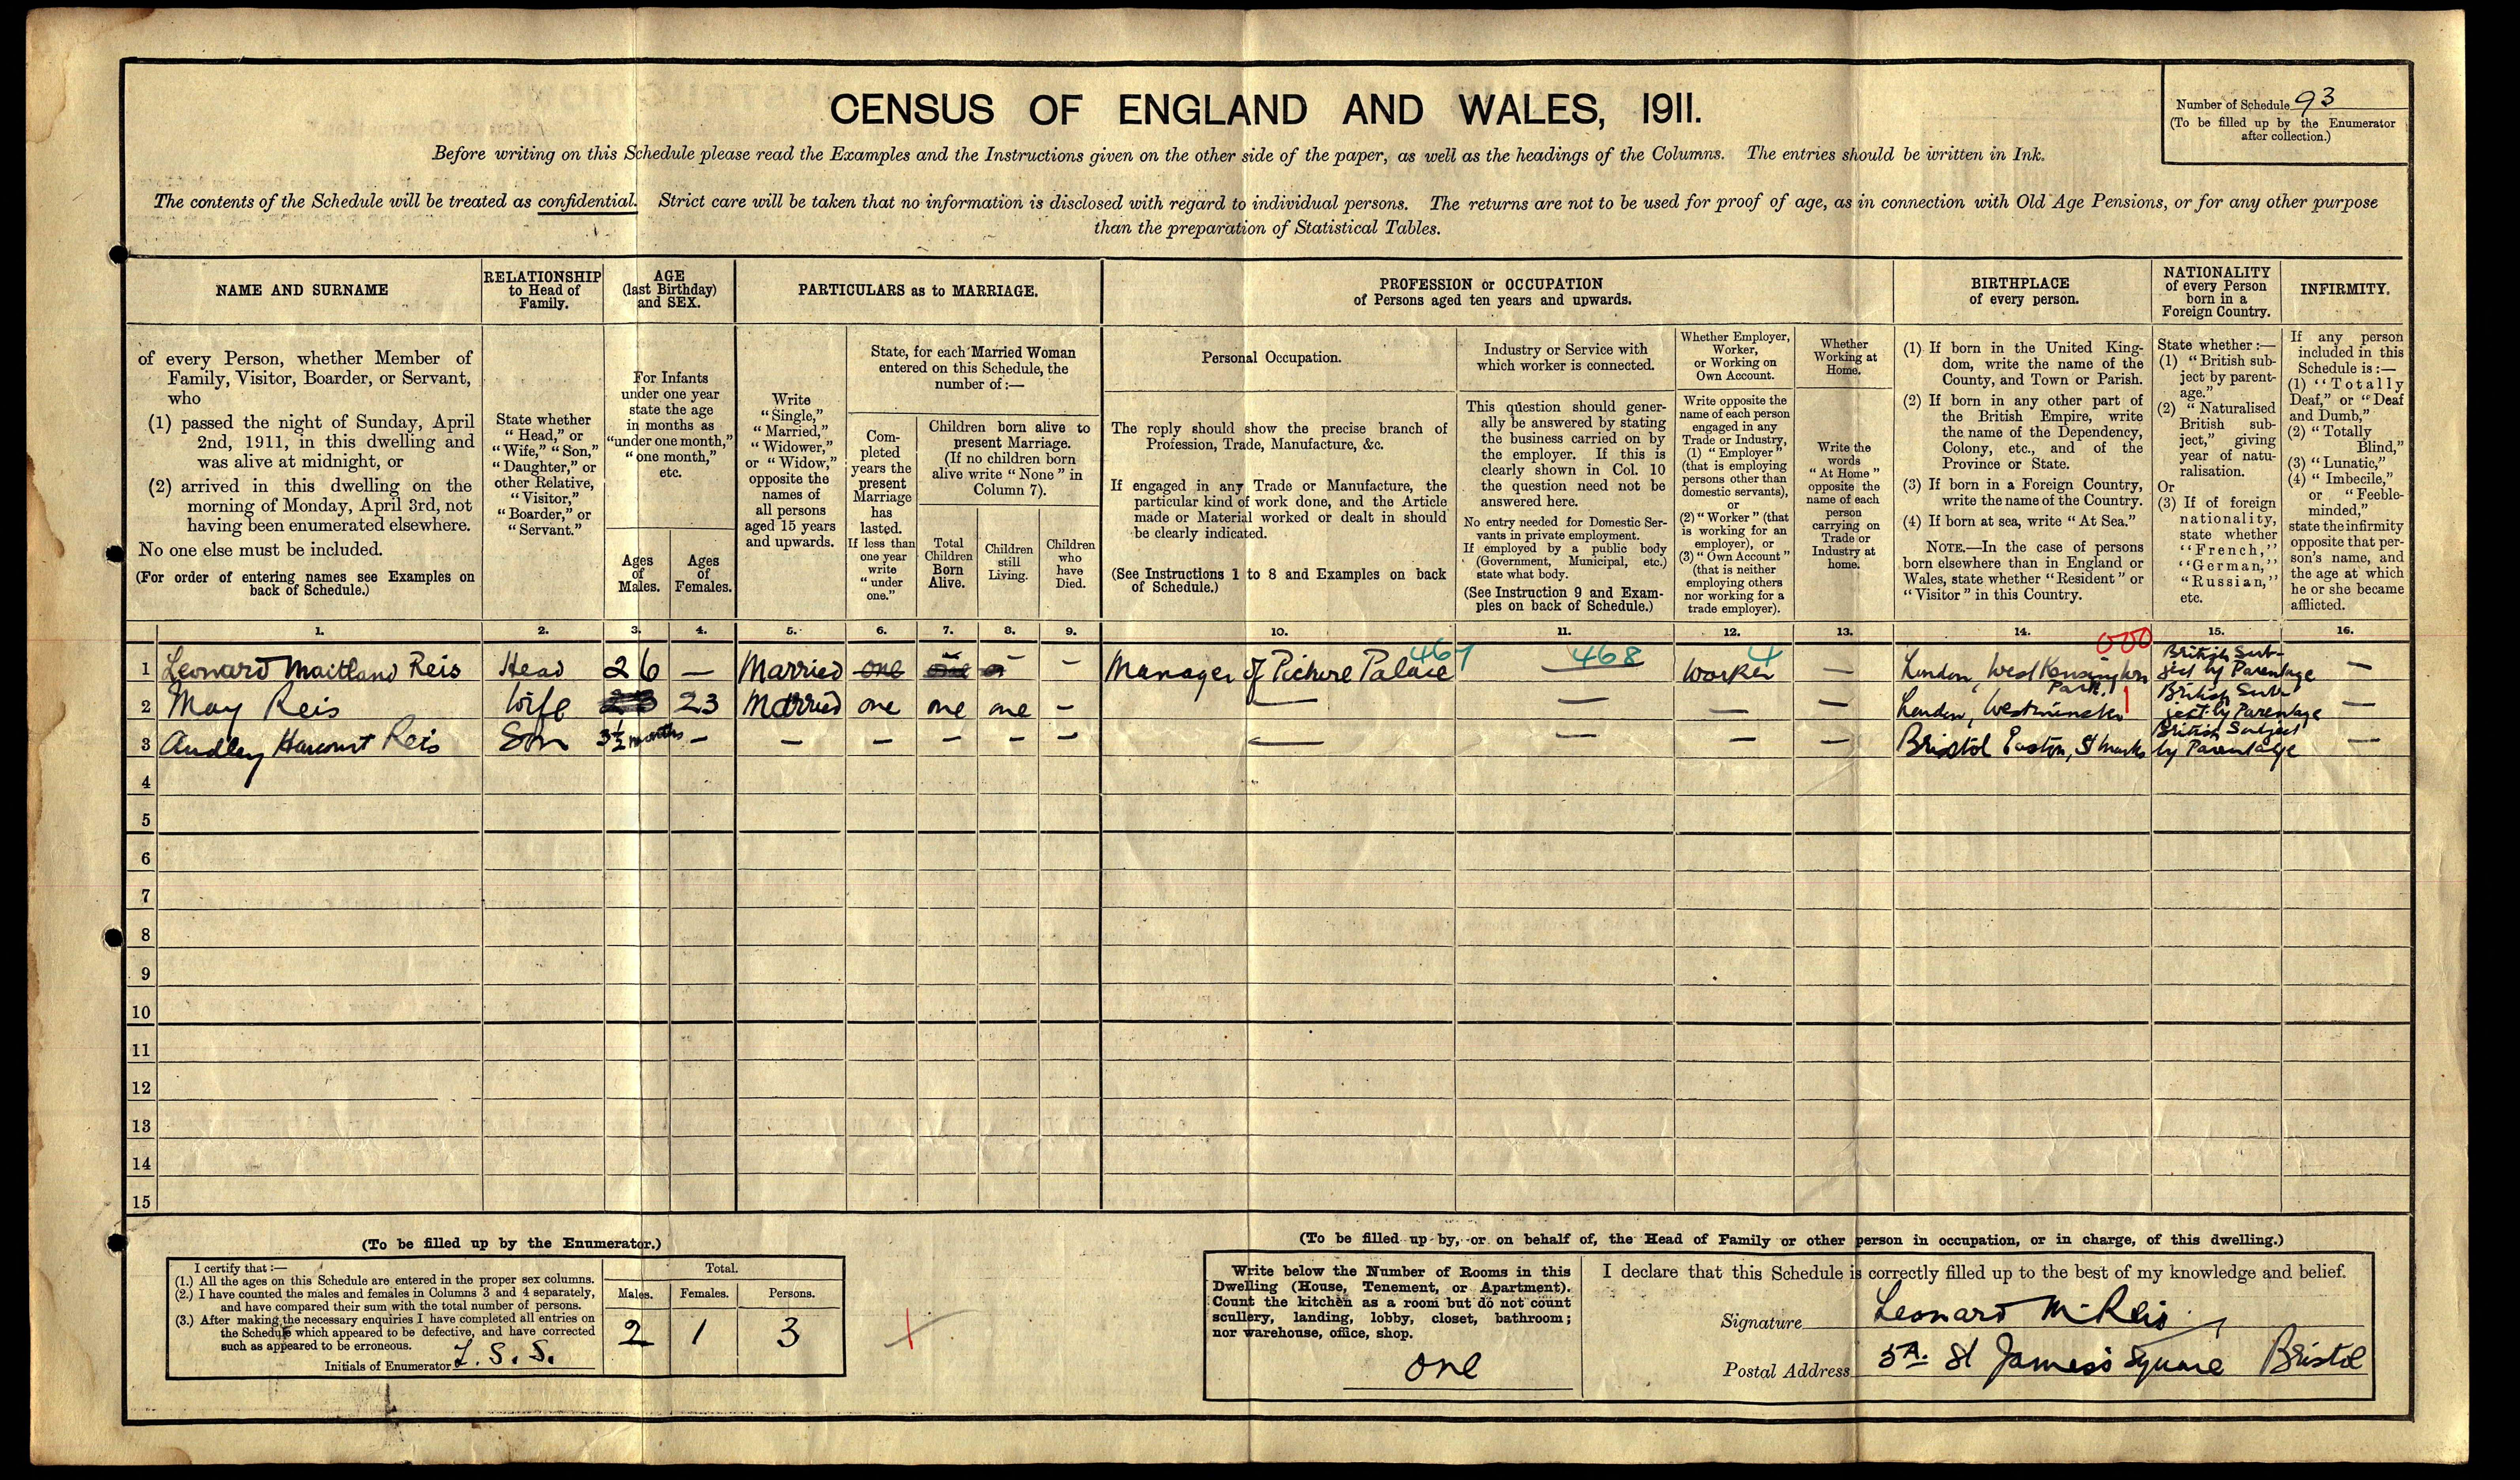 CENSUS OF ENGLAND AND WALES, 1911.
Number of Schedule 93
(To be filled up by the Enumerator
after collection.)
Before writing on this Schedule please read the Examples and the Instructions given on the other side of the paper, as well as the headings of the Columns. The entries should be written in Ink.
The contents of the Schedule will be treated as confidential. Strict care will be taken that no information is disclosed with regard to individual persons. The returns are not to be used for proof of age, as in connection with Old Age Pensions, or for any other purpose
than the preparation of Statistical Tables.
NAME AND SURNAME
of every Person, whether Member of
Family, Visitor, Boarder, or Servant,
who
(1) passed the night of Sunday, April
2nd, 1911, in this dwelling and
was alive at midnight, or
(2) arrived in this dwelling on the
morning of Monday, April 3rd, not
having been enumerated elsewhere.
No one else must be included.
(For order of entering names see Examples on
back of Schedule.)
RELATIONSHIP
to Head of
Family.
State whether
"Head," or
"Wife," "Son,"
"Daughter," or
other Relative,
"Visitor,"
"Boarder," or
"Servant."
AGE
(last Birthday)
and SEX.
For Infants
under one year
state the age
in months as
"under one month,"
"one month,"
etc.
Ages
of
Males.
Ages
of
Females.
PARTICULARS as to MARRIAGE.
Write
"Single,"
"Married,"
"Widower,"
or "Widow,"
opposite the
names of
all persons
aged 15 years
and upwards.
State, for each Married Woman
entered on this Schedule, the
number of:—
Com-
pleted
years the
present
Marriage
has
lasted.
If less than
one year
write
"under
one."
Children born alive to
present Marriage.
(If no children born
alive write "None" in
Column 7).
Total
Children
Born
Alive.
Children
still
Living.
Children
who
have
Died.
PROFESSION or OCCUPATION
of Persons aged ten years and upwards.
Personal Occupation.
The reply should show the precise branch of
Profession, Trade, Manufacture, &c.
If engaged in any Trade or Manufacture, the
particular kind of work done, and the Article
made or Material worked or dealt in should
be clearly indicated.
(See Instructions 1 to 8 and Examples on back
of Schedule.)
Industry or Service with
which worker is connected.
This question should gener-
ally be answered by stating
the business carried on by
the employer. If this is
clearly shown in Col. 10
the question need not be
answered here.
No entry needed for Domestic Ser-
vants in private employment.
If employed by a public body
(Government, Municipal, etc.)
state what body.
(See Instruction 9 and Exam-
ples on back of Schedule.)
Whether Employer,
Worker,
or Working on
Own Account.
Write opposite the
name of each person
engaged in any
Trade or Industry,
(1) "Employer"
(that is employing
persons other than
domestic servants),
or
(2) "Worker" (that
is working for an
employer), or
(3) "Own Account"
(that is neither
employing others
nor working for a
trade employer).
Whether
Working at
Home.
Write the
words
"At Home"
opposite the
name of each
person
carrying on
Trade or
Industry at
home.
BIRTHPLACE
of every person.
(1) If born in the United King-
dom, write the name of the
County, and Town or Parish.
(2) If born in any other part of
the British Empire, write
the name of the Dependency,
Colony, etc., and of the
Province or State.
(3) If born in a Foreign Country,
write the name of the Country.
(4) If born at sea, write "At Sea."
NOTE.—In the case of persons
born elsewhere than in England or
Wales, state whether "Resident" or
"Visitor" in this Country.
NATIONALITY
of every Person
born in a
Foreign Country.
State whether:—
(1) "British sub-
ject by parent-
age."
(2) "Naturalised
British sub-
ject," giving
year of natu-
ralisation.
Or
(3) If of foreign
nationality,
state whether
"French,"
"German,"
"Russian,"
etc.
INFIRMITY.
If any person
included in this
Schedule is:—
(1) "Totally
Deaf," or "Deaf
and Dumb,"
(2) "Totally
Blind,"
(3) "Lunatic,"
(4) "Imbecile,"
or "Feeble-
minded,"
state the infirmity
opposite that per-
son's name, and
the age at which
he or she became
afflicted.
1. 2. 3. 4. 5. 6. 7. 8. 9. 10. 11. 12. 13. 14. 15. 16.
000
1 Leonard Maitland Reis Head 26 — Married one one – Manager of Picture Palace 467 — 468 Worker 4 — London, West Kensington Park. British Sub-ject by Parentage —
2 May Reis Wife 23 Married one one one – — — — — London, Westminster 1 British Sub-ject by Parentage —
3 Audley Harcourt Reis Son 3½ months – – – – – – — — – — Bristol Easton, St Marks British Subject by Parentage —
4
5
6
7
8
9
10
11
12
13
14
15
(To be filled up by the Enumerator.)
I certify that:—
(1.) All the ages on this Schedule are entered in the proper sex columns.
(2.) I have counted the males and females in Columns 3 and 4 separately,
and have compared their sum with the total number of persons.
(3.) After making the necessary enquiries I have completed all entries on
the Schedule which appeared to be defective, and have corrected
such as appeared to be erroneous.
Initials of Enumerator L. S. S.
Total.
Males. Females. Persons.
2 1 3
(To be filled up by, or on behalf of, the Head of Family or other person in occupation, or in charge, of this dwelling.)
Write below the Number of Rooms in this
Dwelling (House, Tenement, or Apartment).
Count the kitchen as a room but do not count
scullery, landing, lobby, closet, bathroom;
nor warehouse, office, shop.
one
I declare that this Schedule is correctly filled up to the best of my knowledge and belief.
Signature Leonard M. Reis
Postal Address 5A. St James's Square Bristol